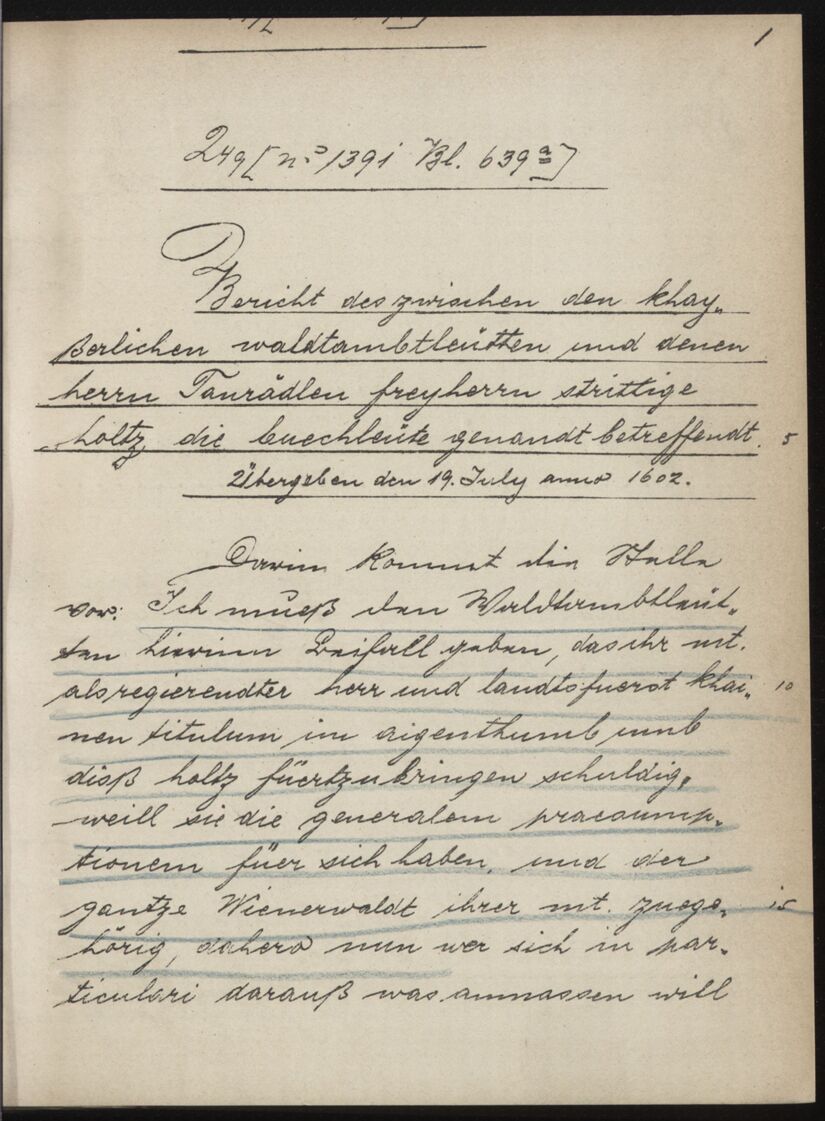 1
249 [nº 1391 Bl. 639ª]
Bericht des zwischen den khay„
ßerlichen waldtambtleütten und denen
herrn Taurädlen freyherrn strittige
holtz, die buechleüte genandt betreffendt. 5
Übergeben den 19. July anno 1602.
Darin kommt die Stelle
vor: Ich mueß den Waldtambtleüt„
ten hierinn Beifall geben, das ihr mt.
als regierendter herr und landtsfuerst khai„ 10
nen titulum im aigenthumb umb
diß holtz füertzubringen schuldig,
weill sie die generalem praesump„
tionem füer sich haben, und der
gantze Wienerwaldt ihrer mt. zuege„ 15
hörig, dahero nun wer sich in par„
ticulari darauß was anmassen will